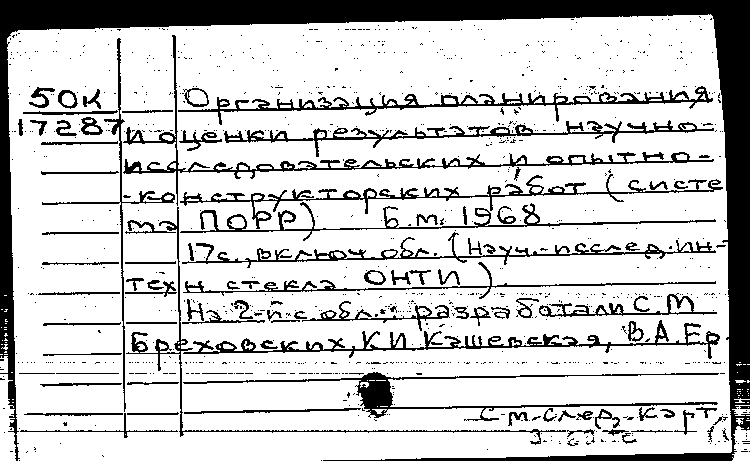 50К
17287
Организация планирования
и оценки результатов научно-
исследовательских и опытно-
-конструкторских работ (систе
ма ПОРР) Б.м. 1968
17с., включ. обл. (Науч.-исслед. ин-
тех н. стекла ОНТИ).
На 2-й с. обл.: разработали С.М
Бреховских, К И Кашевская, В.А.Ер
См.след. карт